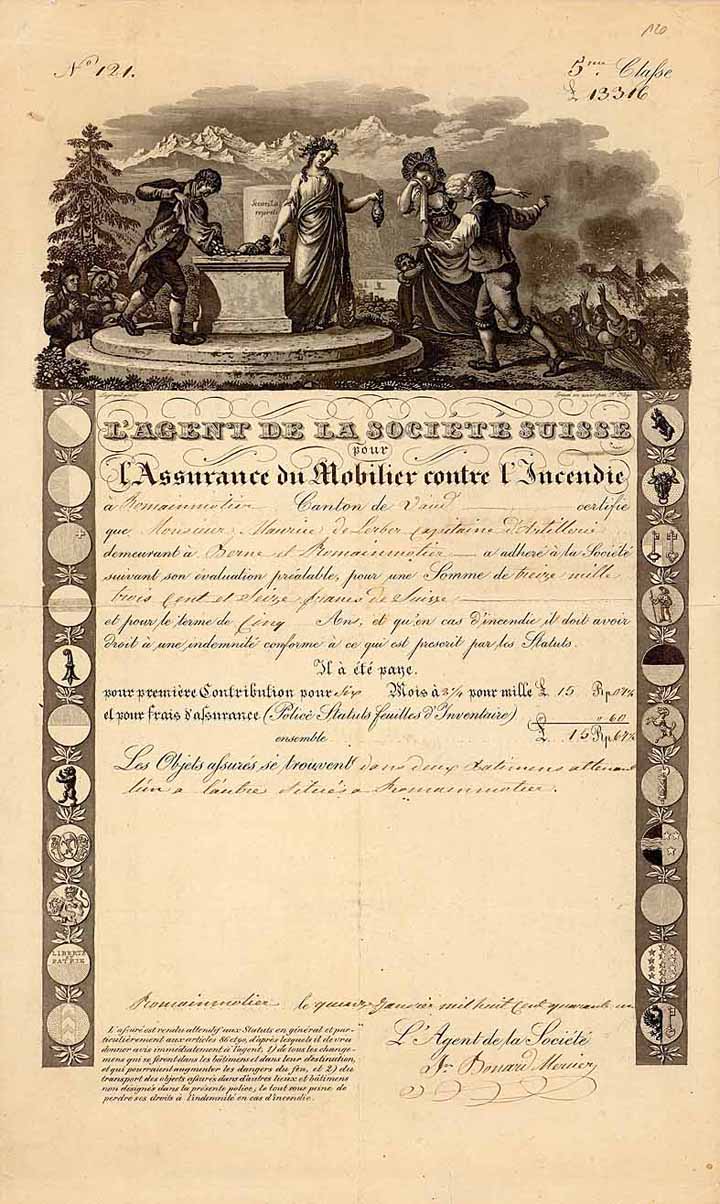 120
Nº 121.
5me. Classe
£ 13316
Secours
reçoit
L'AGENT DE LA SOCIÉTÉ SUISSE
pour
l'Assurance du Mobilier contre l'Incendie
à Romainmotier Canton de Vaud certifie
que Monsieur Maurice de Lerber Capitaine d'Artillerie
demeurant à Berne et Romainmotier a adhéré à la Société
suivant son évaluation préalable, pour une Somme de treize mille
trois Cent et Seize francs de Suisse
et pour le terme de Cinq An, et qu'en cas d'incendie il doit avoir
droit à une indemnité conforme à ce qui est prescrit par les Statuts.
Il a été payé.
pour première Contribution pour Six Mois à 2¼ pour mille £ 15 Rp 07½
et pour frais d'assurance (Police Statuts feuilles d'Inventaire) " 60
ensemble £. 15 Rp 67½
Les Objets assurés se trouvent dans deux batimens attenant
l'un a l'autre situés a Romainmotier.
LIBERTÉ
ET
PATRIE
Romainmotier le quinze Janvier mil huit Cent quarante un
L'assuré est rendu attentif aux Statuts en général et par-
ticulièrement aux articles 86 et 90, d'après lesquels il devra
donner avis immédiatement à l'agent, 1) de tous les change-
mens qui se feront dans les bâtimens et dans leur destination,
et qui pourraient augmenter les dangers du feu, et 2) du
transport des objets assurés dans d'autres lieux et bâtimens
non désignés dans la présente police, le tout sous peine de
perdre ses droits à l'indemnité en cas d'incendie.
L'Agent de la Société
Bonard Mercier